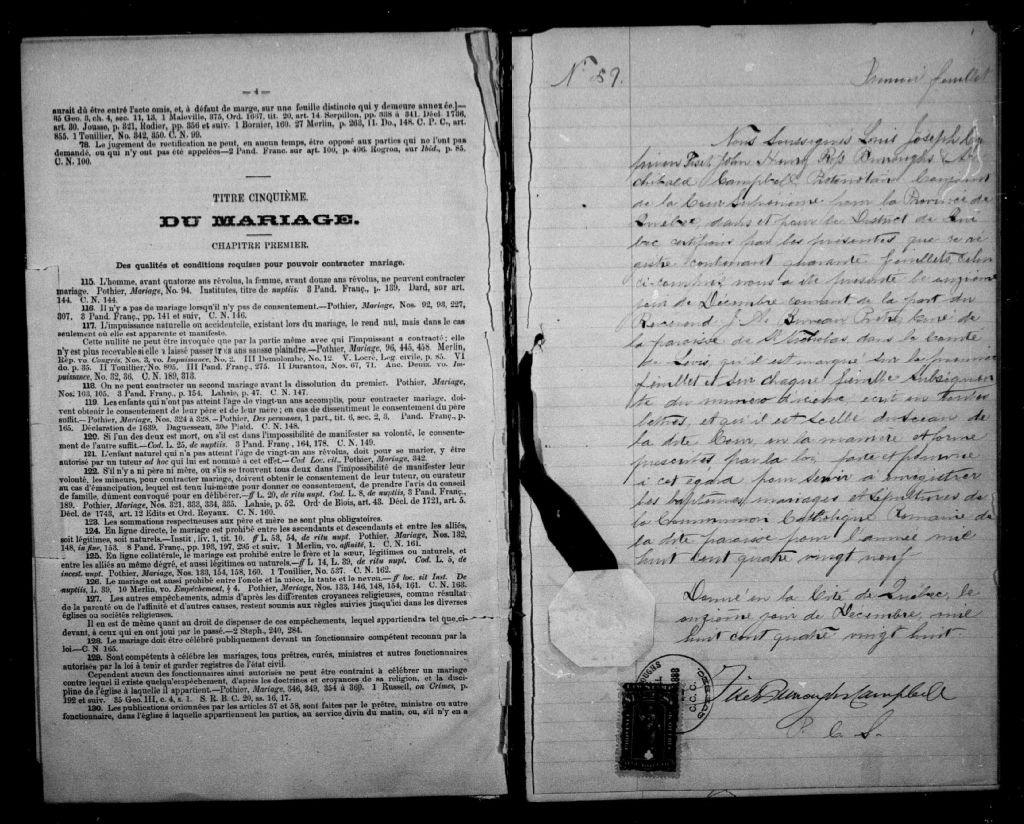 — 4 —
aurait dû être entré l'acte omis, et, à défaut de marge, sur une feuille distincte qui y demeure annexée.]—
35 Geo. 3, ch. 4, sec. 11, 13, 1 Maleville, 375, Ord. 1667, tit. 20, art. 14. Serpillon, pp. 338 à 341. Décl. 1736,
art. 30. Jousse, p. 321, Rodier, pp. 356 et suiv. 1 Bornier, 160. 27 Merlin, p. 263, 11. Do., 148. C. P. C., art.
855. 1 Touillier, No. 342, 350. C. N. 99.
78. Le jugement de rectification ne peut, en aucun temps, être opposé aux parties qui ne l'ont pas
demandé, ou qui n'y ont pas été appelées—2 Pand. Franc. sur art. 100, p. 406. Rogron, sur Ibid., p. 85.
C. N. 100.
TITRE CINQUIÈME.
DU MARIAGE.
CHAPITRE PREMIER.
Des qualités et conditions requises pour pouvoir contracter mariage.
115. L'homme, avant quatorze ans révolus, la femme, avant douze ans révolus, ne peuvent contracter
mariage. Pothier, Mariage, No. 94. Institutes, titre de nuptiis. 3 Pand. Franç., p. 139. Dard, sur art.
144. C. N. 144.
116. Il n'y a pas de mariage lorsqu'il n'y pas de consentement.—Pothier, Mariage, Nos. 92, 93, 227,
307. 3 Pand. Franç., pp. 141 et suiv, C. N. 146.
117. L'impuissance naturelle ou accidentelle, existant lors du mariage, le rend nul, mais dans le cas
seulement où elle est apparente et manifeste.
Cette nullité ne peut être invoquée que par la partie même avec qui l'impuissant a contracté; elle
n'y est plus recevable si elle a laissé passer trois ans sans se plaindre.—Pothier, Mariage, 96, 445, 458. Merlin,
Rép. vo. Congrès, Nos. 3, vo. Impuissance, No. 2. III Demolombe, No. 12. V. Locré, Leg. civile, p. 85. VI
do. p. 35. II Touillier, No. 805. III Pand. Franç., 275. II Duranton, Nos. 67, 71. Anc. Deniz. vo. Im-
puissance, No. 32, 36. C. N. 189, 313.
118. On ne peut contracter un second mariage avant la dissolution du premier. Pothier, Mariage,
Nos. 103, 105. 3 Pand. Franç., p. 154. Lahaie, p. 47. C. N. 147.
119. Les enfants qui n'ont pas atteint l'âge de vingt-un ans accomplis, pour contracter mariage, doi-
vent obtenir le consentement de leur père et de leur mère; en cas de dissentiment le consentement du père
suffit.—Pothier, Mariage, Nos. 324 à 328.—Pothier, Des personnes, 1 part., tit. 6, sec. 2, 3. Pand. Franç., p.
165. Déclaration de 1639. Daguesseau, 30e Plaid. C. N. 148.
120. Si l'un des deux est mort, ou s'il est dans l'impossibilité de manifester sa volonté, le consente-
ment de l'autre suffit.—Cod. L. 25, de nuptiis. 3 Pand. Franç., 164, 178. C. N. 149.
121. L'enfant naturel qui n'a pas atteint l'âge de vingt-un ans révolus, doit pour se marier, y être
autorisé par un tuteur ad hoc qui lui est nommé à cet effet.—Cod Loc. cit., Pothier, Mariage, 342.
122. S'il n'y a ni père ni mère, ou s'ils se trouvent tous deux dans l'impossibilité de manifester leur
volonté, les mineurs, pour contracter mariage, doivent obtenir le consentement de leur tuteur, ou curateur
au cas d'émancipation, lequel est tenu lui-même pour donner ce consentement, de prendre l'avis du conseil
de famille, dûment convoqué pour en délibérer.—ff L. 20, de ritu nupt. Cod. L. 8, de nuptiis, 3 Pand. Franç.,
189. Pothier, Mariage, Nos. 321, 333, 334, 335. Lahaie, p. 52. Ord· de Blois, art. 43. Décl. de 1721, art. 5.
Décl. de 1743, art. 12 Edits et Ord. Royaux. C. N. 160.
123. Les sommations respectueuses aux père et mère ne sont plus obligatoires.
124. En ligne directe, le mariage est prohibé entre les ascendants et descendants et entre les alliés,
soit légitimes, soit naturels.—Instit, liv. 1, tit. 10. ff L. 53, 54, de ritu nupt. Pothier, Mariage, Nos. 132,
148, in fine, 153. 3 Pand. Franç., pp. 193, 197, 295 et suiv. 1 Merlin, vo. affinité, 1. C. N. 161.
125. En ligne collatérale, le mariage est prohibé entre le frère et la sœur, légitimes ou naturels, et
entre les alliés au même dégré, et aussi légitimes ou naturels.—ff L. 14, L. 39, de ritu nupt. Cod. L. 5, de
incest. nupt. Pothier, Mariage, Nos. 133, 154, 158, 160. 1 Touillier, No. 537. C. N. 162.
126. Le mariage est aussi prohibé entre l'oncle et la nièce, la tante et le neveu.—ff loc. sit Inst. De
nuptiis, L. 39, 10 Merlin, vo. Empêchement, § 4. Pothier, Mariage, Nos. 133, 146, 148, 154, 161. C. N. 163.
127. Les autres empêchements, admis d'après les différentes croyances religieuses, comme résultat
de la parenté ou de l'affinité et d'autres causes, restent soumis aux règles suivies jusqu'ici dans les diverses
églises ou sociétés religieuses.
Il en est de même quant au droit de dispenser de ces empêchements, lequel appartiendra tel que, ci-
devant, à ceux qui en ont joui par le passé.—2 Steph., 240, 284.
128. Le mariage doit être célébré publiquement devant un fonctionnaire compétent reconnu par la
loi—C. N. 165.
129. Sont compétents à célébre les mariages, tous prêtres, curés, ministres et autres fonctionnaires
autorisés par la loi à tenir et garder registres de l'état civil.
Cependant aucun des fonctionnaires ainsi autorisés ne peut être contraint à célébrer un mariage
contre lequel il existe quelqu'empêchement, d'après les doctrines et croyances de sa religion, et la disci-
pline de l'église à laquelle il appartient.—Pothier, Mariage, 346, 349, 354 à 360. 1 Russell, on Crimes, p.
192 et suiv. 35 Geo. III, c. 4, s. 1. S. R. B. C. 20, ss. 16, 17.
130. Les publications ordonnées par les articles 57 et 58, sont faites par le prêtre, ministre ou autre
fonctionnaire, dans l'église à laquelle appartiennent les parties, au service divin du matin, ou, s'il n'y en a
No 59.
Premier feuillet
Nous Soussignés Louis Joseph Cy
prien Fiset, John Henry Ross Burroughs & Ar
chibald Campbell, Protonotaire Conjoint
de la Cour Supérieure pour la Province de
Québec, dans et pour le District de Qué
bec certifions par les présentes que ce ré
gistre contenant quarante feuillets, celui
ci compris nous a été présenté le onzième
jour de Décembre courant de la part du
Révérend J. Duncan Ptre Curé de
la paroisse de St Nicholas dans le Comté
de Lévis, qu'il est marqué sur le premier
feuillet et sur chaque feuille subséquen
te du numéro écrit en toutes
lettres, et qu'il est scellé du sceau de
la dite Cour, en la manière et forme
prescrites par la loi, faite et pourvue
à cet égard pour servir à enregistrer
les baptêmes, mariages et sépultures de
la Communion Catholique Romaine de
la dite paroisse pour l'année mil
huit cent quatre vingt neuf
Donné en la Cité de Québec, le
onzième jour de Décembre, mil
huit cent quatre vingt huit
Fiset Burroughs Campbell
P. C. S.